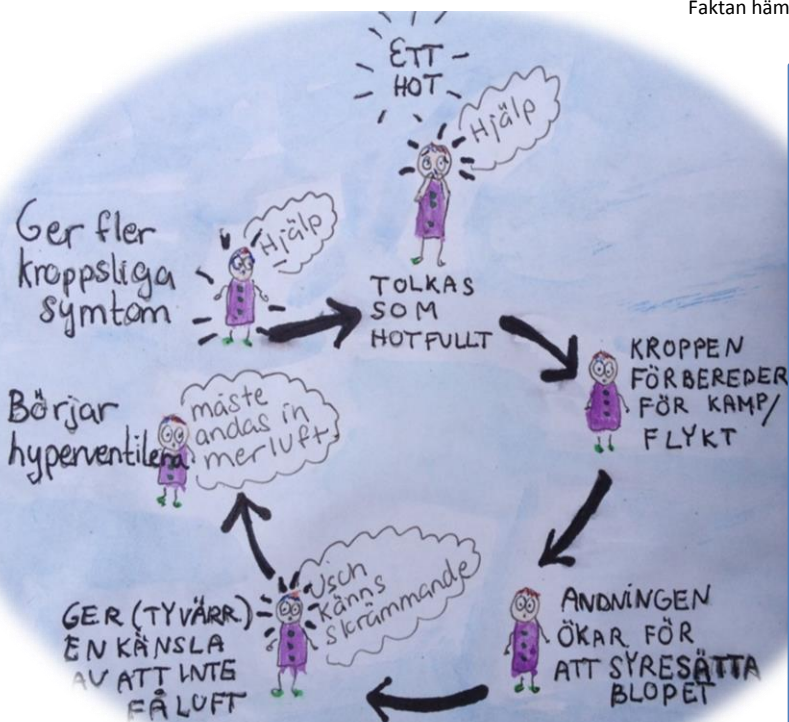 Faktan häm
ETT
HOT
Hjälp
TOLKAS
SOM
HOTFULLT
KROPPEN
FÖRBEREDER
FÖR KAMP/
FLYKT
ANDNINGEN
ÖKAR FÖR
ATT SYRESÄTTA
BLOPET
GER (TYVÄRR)
EN KÄNSLA
AV ATT INTE
FÅ LUFT
Usch
känns
skrämmande
Börjar
hyperventilera
måste
andas in
mer luft
Ger fler
kroppsliga
symtom
Hjälp